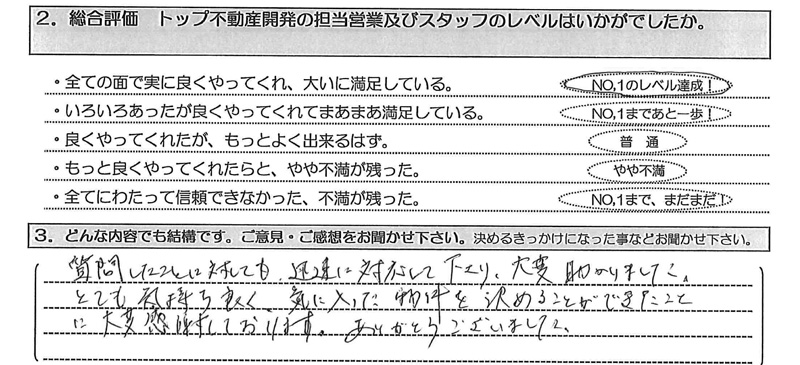 2. 総合評価　トップ不動産開発の担当営業及びスタッフのレベルはいかがでしたか。
・全ての面で実に良くやってくれ、大いに満足している。 NO,1のレベル達成！
・いろいろあったが良くやってくれてまあまあ満足している。 NO,1まであと一歩！
・良くやってくれたが、もっとよく出来るはず。 普　通
・もっと良くやってくれたらと、やや不満が残った。 やや不満
・全てにわたって信頼できなかった、不満が残った。 NO,1まで、まだまだ！
3. どんな内容でも結構です。ご意見・ご感想をお聞かせ下さい。決めるきっかけになった事などお聞かせ下さい。
質問したことに対しても、迅速に対応して下さり、大変助かりました。
とても気持ち良く、気に入った物件を決めることができたこと
に大変感謝しております。ありがとうございました。